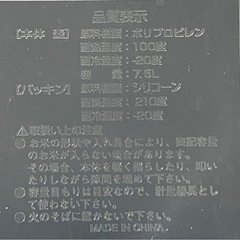 品質表示
【本体 蓋】 原料種度：ポリプロピレン
耐熱温度：100度
耐冷温度：-20度
容量：7.5L
【パッキン】 原料種度：シリコーン
耐熱温度：210度
耐冷温度：-20度
⚠取扱い上の注意⚠
●お米の形状や入れ具合により、表記容量が入らない場合があります。
その場合、本体を軽く揺らしたり、叩いたりしながら隙間を詰めて下さい。
●容量目もりは目安なので、計量器具として使わないで下さい。
●火のそばに置かないで下さい。
MADE IN CHINA